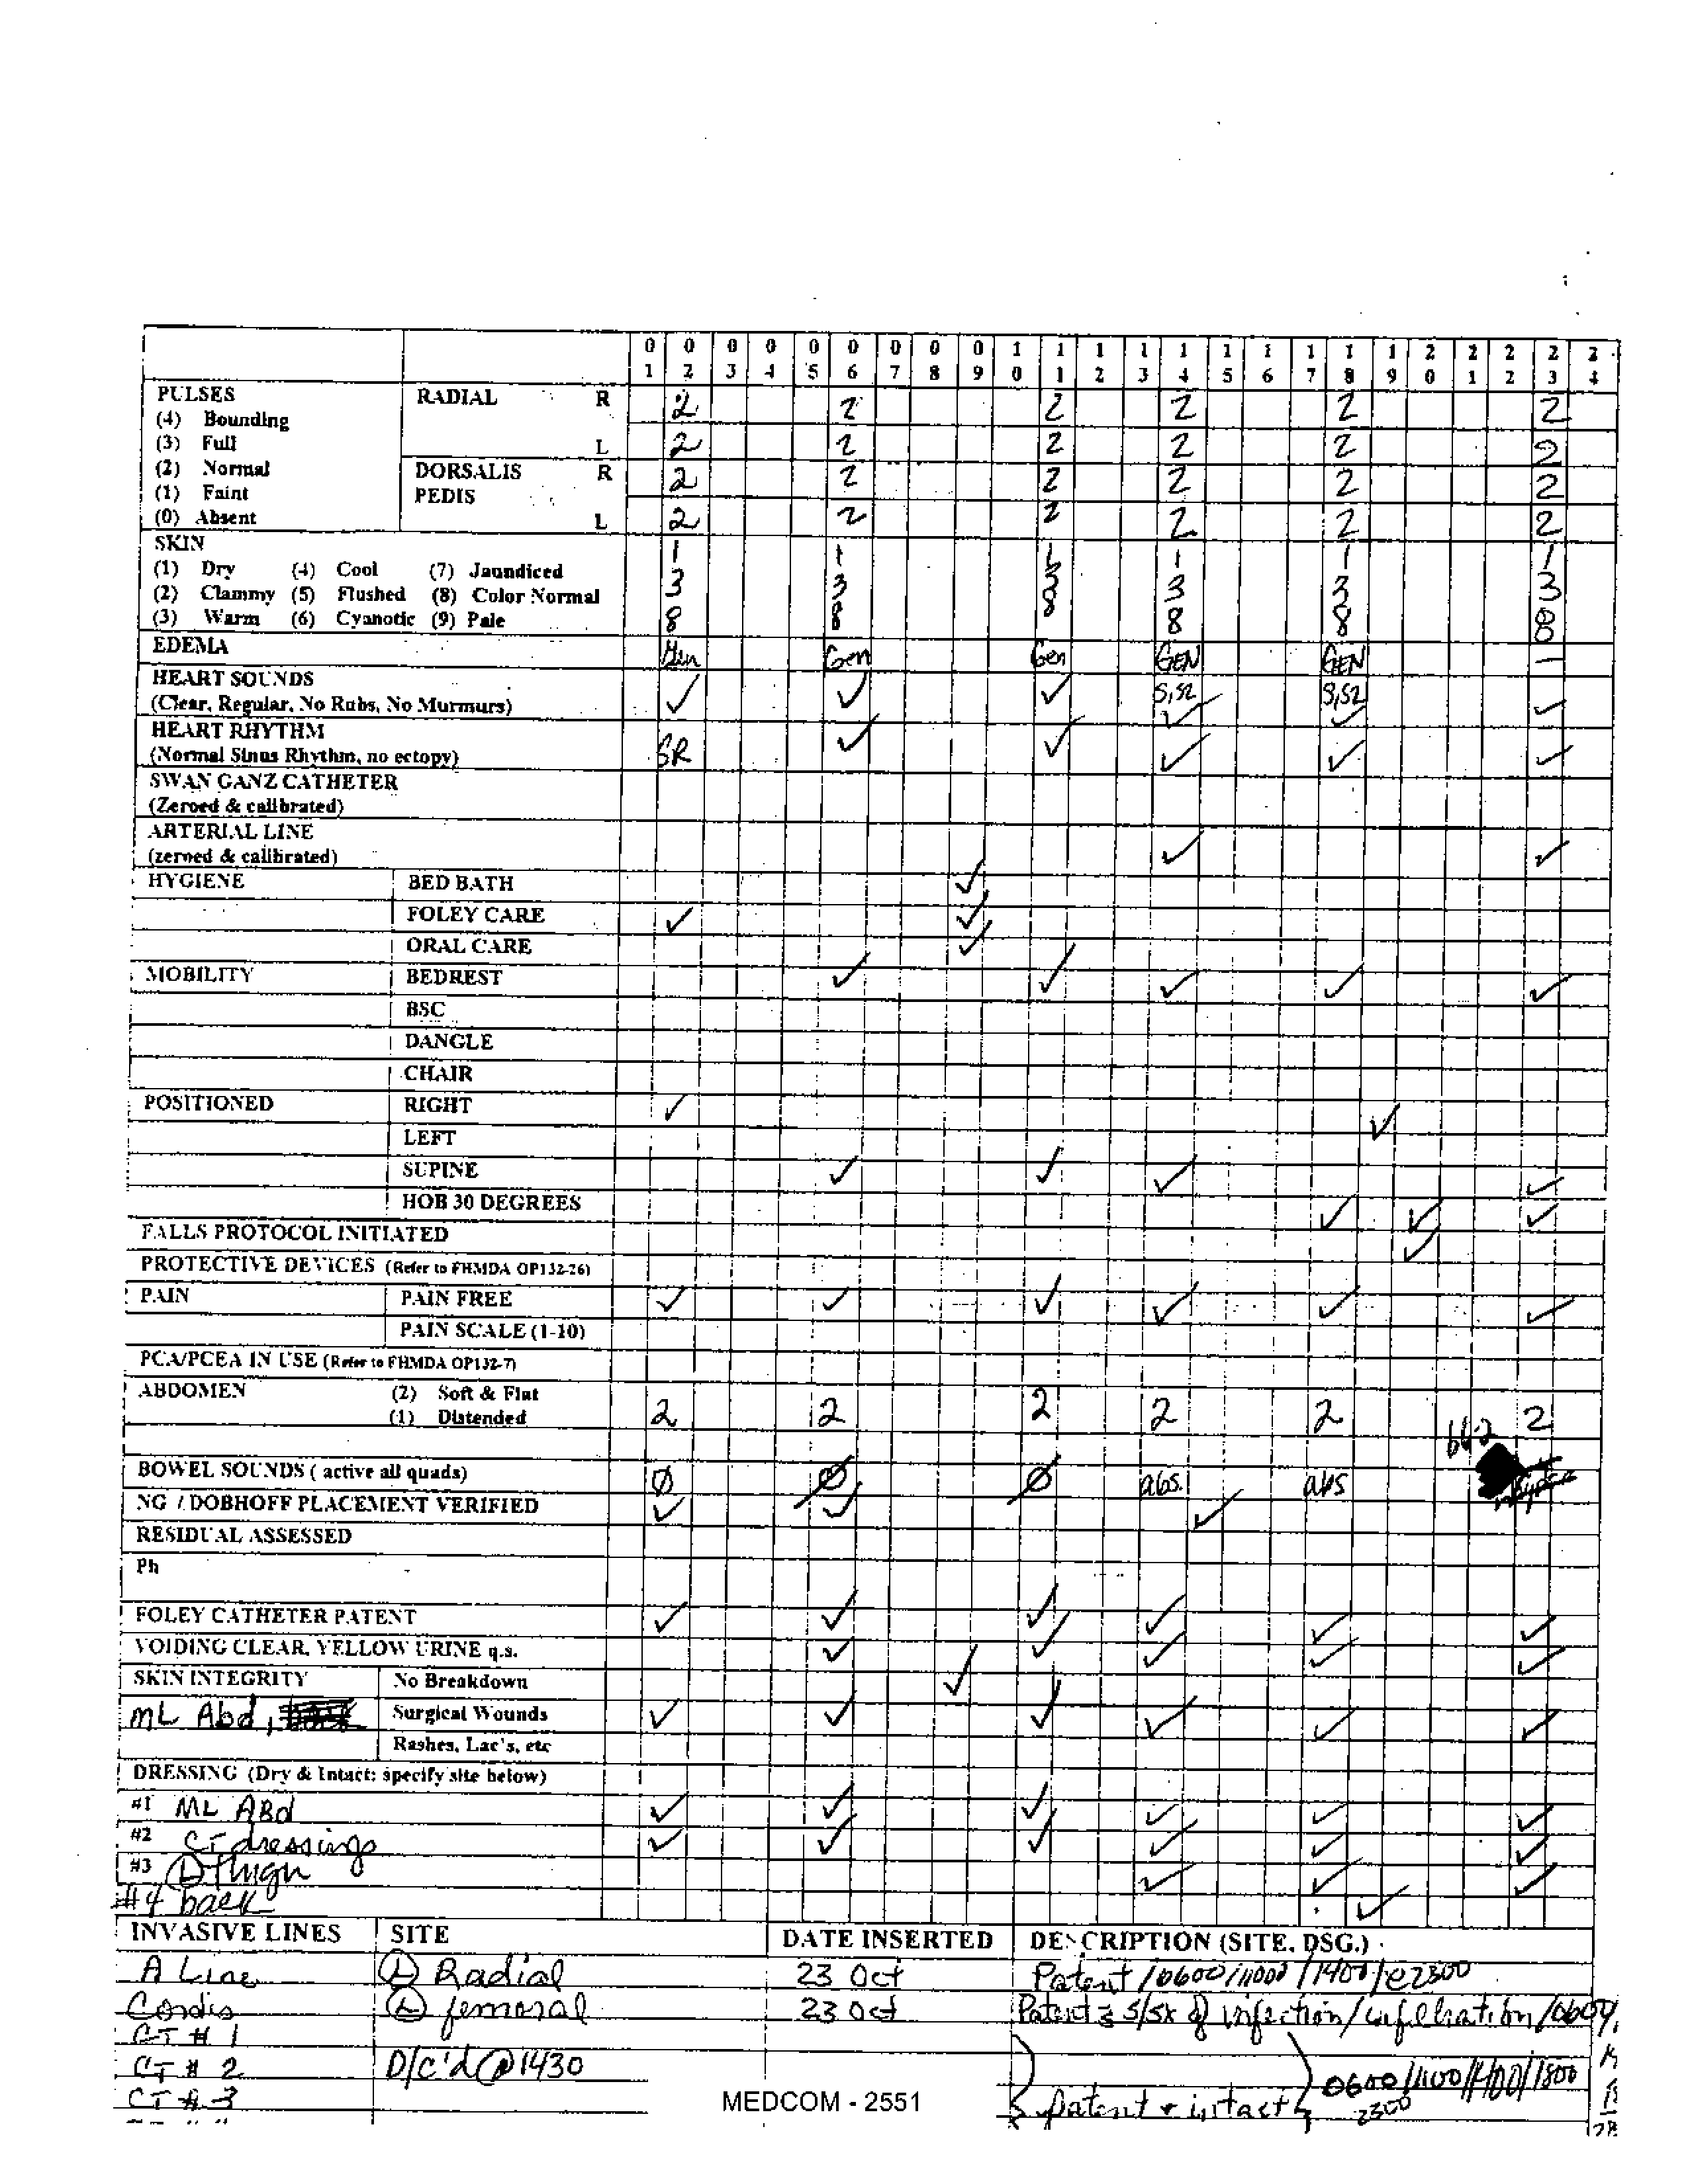 0 0 0 0 0 0 0 0 0 1 1 1 1 1 1 1 1 1 1 2 2 2 2 2
1 2 3 4 5 6 7 8 9 0 1 2 3 4 5 6 7 8 9 0 1 2 3 4
PULSES RADIAL R 2 2 2 2 2 2
(4) Bounding
(3) Full L 2 2 2 2 2 2
(2) Normal DORSALIS R 2 2 2 2 2 2
(1) Faint PEDIS
(0) Absent L 2 2 2 2 2 2
SKIN 1 1 1 1 1 1
(1) Dry (4) Cool (7) Jaundiced
(2) Clammy (5) Flushed (8) Color Normal 3 3 3 3 3 3
(3) Warm (6) Cyanotic (9) Pale 8 8 8 8 8 8
EDEMA Gen Gen Gen GEN GEN —
HEART SOUNDS ✓ ✓ ✓ S1S2 S1S2
(Clear, Regular, No Rubs, No Murmurs) ✓ ✓ ✓
HEART RHYTHM ✓ ✓
(Normal Sinus Rhythm, no ectopy) SR ✓ ✓ ✓
SWAN GANZ CATHETER
(Zeroed & calibrated)
ARTERIAL LINE
(zeroed & calibrated) ✓ ✓
HYGIENE BED BATH ✓
FOLEY CARE ✓ ✓
ORAL CARE ✓
MOBILITY BEDREST ✓ ✓ ✓ ✓ ✓
BSC
DANGLE
CHAIR
POSITIONED RIGHT ✓ ✓
LEFT
SUPINE ✓ ✓ ✓ ✓
HOB 30 DEGREES ✓ ✓ ✓
FALLS PROTOCOL INITIATED ✓
PROTECTIVE DEVICES (Refer to FHMDA OP132-26)
PAIN PAIN FREE ✓ ✓ ✓ ✓ ✓ ✓
PAIN SCALE (1-10)
PCA/PCEA IN USE (Refer to FHMDA OP132-7)
ABDOMEN (2) Soft & Flat
(1) Distended 2 2 2 2 2 2
b6-2
BOWEL SOUNDS ( active all quads) Ø Ø Ø abs. abs
NG / DOBHOFF PLACEMENT VERIFIED ✓ ✓ ✓
RESIDUAL ASSESSED
Ph
FOLEY CATHETER PATENT ✓ ✓ ✓ ✓ ✓ ✓
VOIDING CLEAR, YELLOW URINE q.s. ✓ ✓ ✓ ✓ ✓
SKIN INTEGRITY No Breakdown ✓
ML Abd, Surgical Wounds ✓ ✓ ✓ ✓ ✓ ✓
Rashes, Lac's, etc
DRESSING (Dry & Intact: specify site below)
#1 ML ABd ✓ ✓ ✓ ✓ ✓ ✓
#2 CT dressings ✓ ✓ ✓ ✓ ✓ ✓
#3 Ⓛ thigh ✓ ✓ ✓
#4 back ✓
INVASIVE LINES SITE DATE INSERTED DESCRIPTION (SITE, DSG.)
A Line Ⓛ Radial 23 Oct Patent /0600/1000/1400/@2300
Cordis Ⓛ femoral 23 Oct Patent s/sx of infection/infiltration/0600/
CT # 1
CT # 2 D/c'd @1430 0600/1100/1400/1800
CT # 3 patent + intact 2300
MEDCOM - 2551